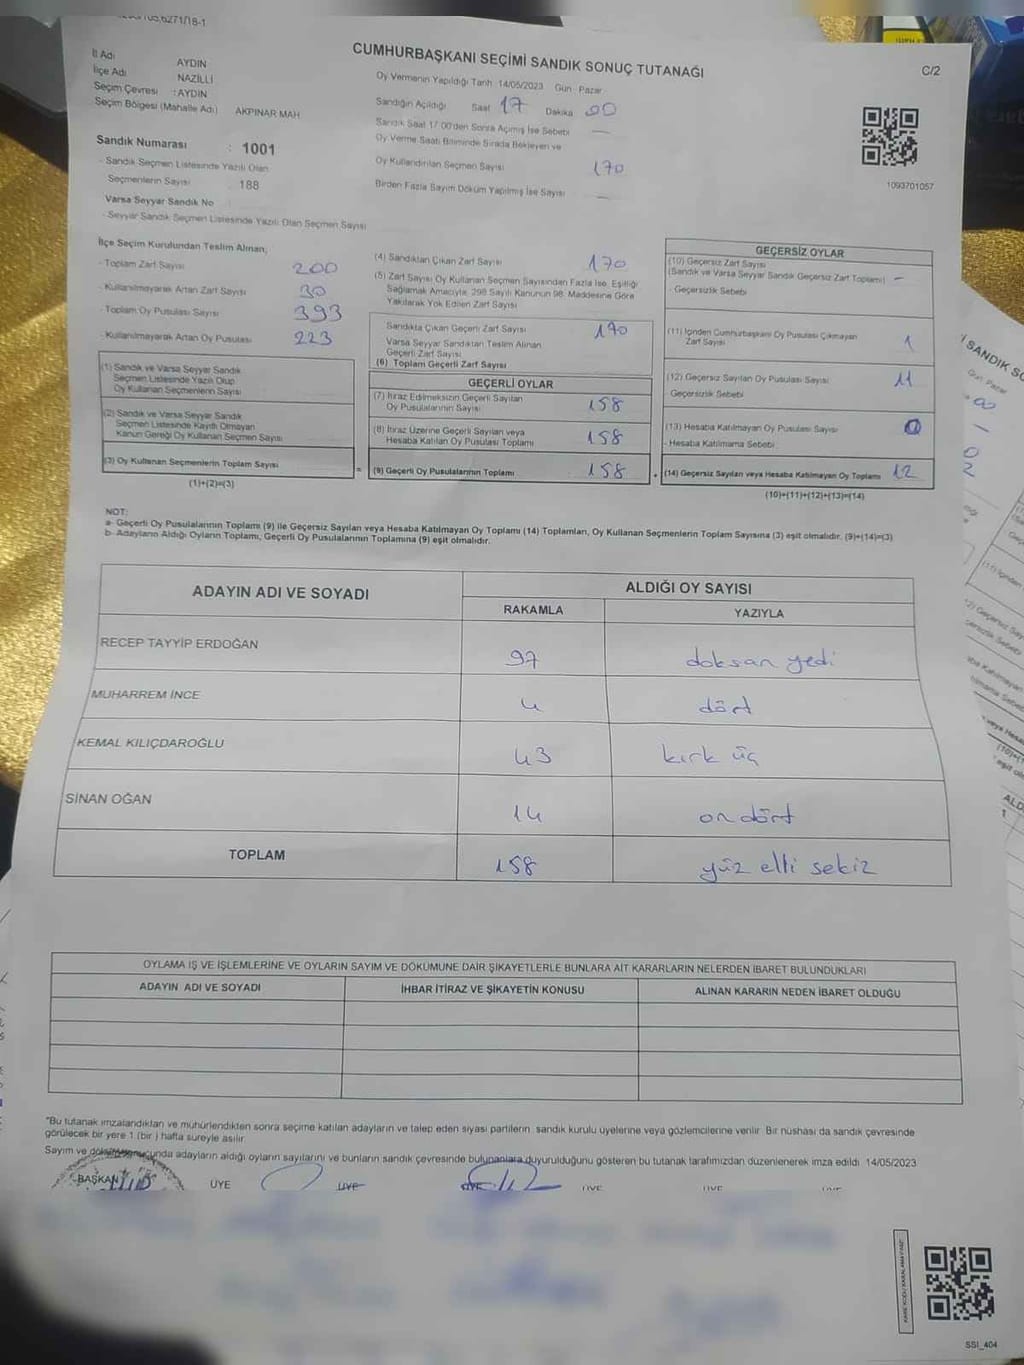 CUMHURBAŞKANI SEÇİMİ SANDIK SONUÇ TUTANAĞI
C/2
İl Adı AYDIN
İlçe Adı NAZİLLİ
Seçim Çevresi : AYDIN
Seçim Bölgesi (Mahalle Adı) AKPINAR MAH
Oy Vermenin Yapıldığı Tarih 14/05/2023 Gün Pazar
Sandığın Açıldığı Saat 17 Dakika 00
Sandık Saat 17 00'den Sonra Açılmış İse Sebebi —
Oy Verme Saati Bitiminde Sırada Bekleyen ve
Oy Kullandırılan Seçmen Sayısı 170
Birden Fazla Sayım Döküm Yapılmış İse Sayısı —
1093701057
Sandık Numarası : 1001
- Sandık Seçmen Listesinde Yazılı Olan
Seçmenlerin Sayısı 188
Varsa Seyyar Sandık No
- Seyyar Sandık Seçmen Listesinde Yazılı Olan Seçmen Sayısı
İlçe Seçim Kurulundan Teslim Alınan;
- Toplam Zarf Sayısı 200
- Kullanılmayarak Artan Zarf Sayısı 30
- Toplam Oy Pusulası Sayısı 393
- Kullanılmayarak Artan Oy Pusulası 223
(1) Sandık ve Varsa Seyyar Sandık
Seçmen Listesinde Yazılı Olup
Oy Kullanan Seçmenlerin Sayısı
(2) Sandık ve Varsa Seyyar Sandık
Seçmen Listesinde Kaydı Olmayan
Kanun Gereği Oy Kullanan Seçmen Sayısı
(3) Oy Kullanan Seçmenlerin Toplam Sayısı
(1)+(2)=(3)
(4) Sandıktan Çıkan Zarf Sayısı 170
(5) Zarf Sayısı Oy Kullanan Seçmen Sayısından Fazla İse, Eşitliği
Sağlamak Amacıyla, 298 Sayılı Kanunun 98. Maddesine Göre
Yakılarak Yok Edilen Zarf Sayısı
Sandıkta Çıkan Geçerli Zarf Sayısı 170
Varsa Seyyar Sandıktan Teslim Alınan
Geçerli Zarf Sayısı
(6) Toplam Geçerli Zarf Sayısı
GEÇERLİ OYLAR
(7) İtiraz Edilmeksizin Geçerli Sayılan
Oy Pusulalarının Sayısı 158
(8) İtiraz Üzerine Geçerli Sayılan veya
Hesaba Katılan Oy Pusulası Toplamı 158
= (9) Geçerli Oy Pusulalarının Toplamı 158
GEÇERSİZ OYLAR
(10) Geçersiz Zarf Sayısı
(Sandık ve Varsa Seyyar Sandık Geçersiz Zarf Toplamı) –
- Geçersizlik Sebebi
(11) İçinden Cumhurbaşkanı Oy Pusulası Çıkmayan
Zarf Sayısı 1
(12) Geçersiz Sayılan Oy Pusulası Sayısı 11
Geçersizlik Sebebi
(13) Hesaba Katılmayan Oy Pusulası Sayısı 0
- Hesaba Katılmama Sebebi
+ (14) Geçersiz Sayılan veya Hesaba Katılmayan Oy Toplamı 12
(10)+(11)+(12)+(13)=(14)
NOT:
a- Geçerli Oy Pusulalarının Toplamı (9) ile Geçersiz Sayılan veya Hesaba Katılmayan Oy Toplamı (14) Toplamları, Oy Kullanan Seçmenlerin Toplam Sayısına (3) eşit olmalıdır. (9)+(14)=(3)
b- Adayların Aldığı Oyların Toplamı, Geçerli Oy Pusulalarının Toplamına (9) eşit olmalıdır.
ADAYIN ADI VE SOYADI
ALDIĞI OY SAYISI
RAKAMLA YAZIYLA
RECEP TAYYİP ERDOĞAN 97 doksan yedi
MUHARREM İNCE 4 dört
KEMAL KILIÇDAROĞLU 43 kırk üç
SİNAN OĞAN 14 on dört
TOPLAM 158 yüz elli sekiz
OYLAMA İŞ VE İŞLEMLERİNE VE OYLARIN SAYIM VE DÖKÜMÜNE DAİR ŞİKAYETLERLE BUNLARA AİT KARARLARIN NELERDEN İBARET BULUNDUKLARI
ADAYIN ADI VE SOYADI İHBAR İTİRAZ VE ŞİKAYETİN KONUSU ALINAN KARARIN NEDEN İBARET OLDUĞU
"Bu tutanak imzalandıktan ve mühürlendikten sonra seçime katılan adayların ve talep eden siyasi partilerin sandık kurulu üyelerine veya gözlemcilerine verilir. Bir nüshası da sandık çevresinde
görülecek bir yere 1 (bir ) hafta süreyle asılır.
Sayım ve döküm sonucunda adayların aldığı oyların sayılarını ve bunların sandık çevresinde bulunanlara duyurulduğunu gösteren bu tutanak tarafımızdan düzenlenerek imza edildi 14/05/2023
BAŞKAN ÜYE ÜYE ÜYE ÜYE ÜYE
SSI_404